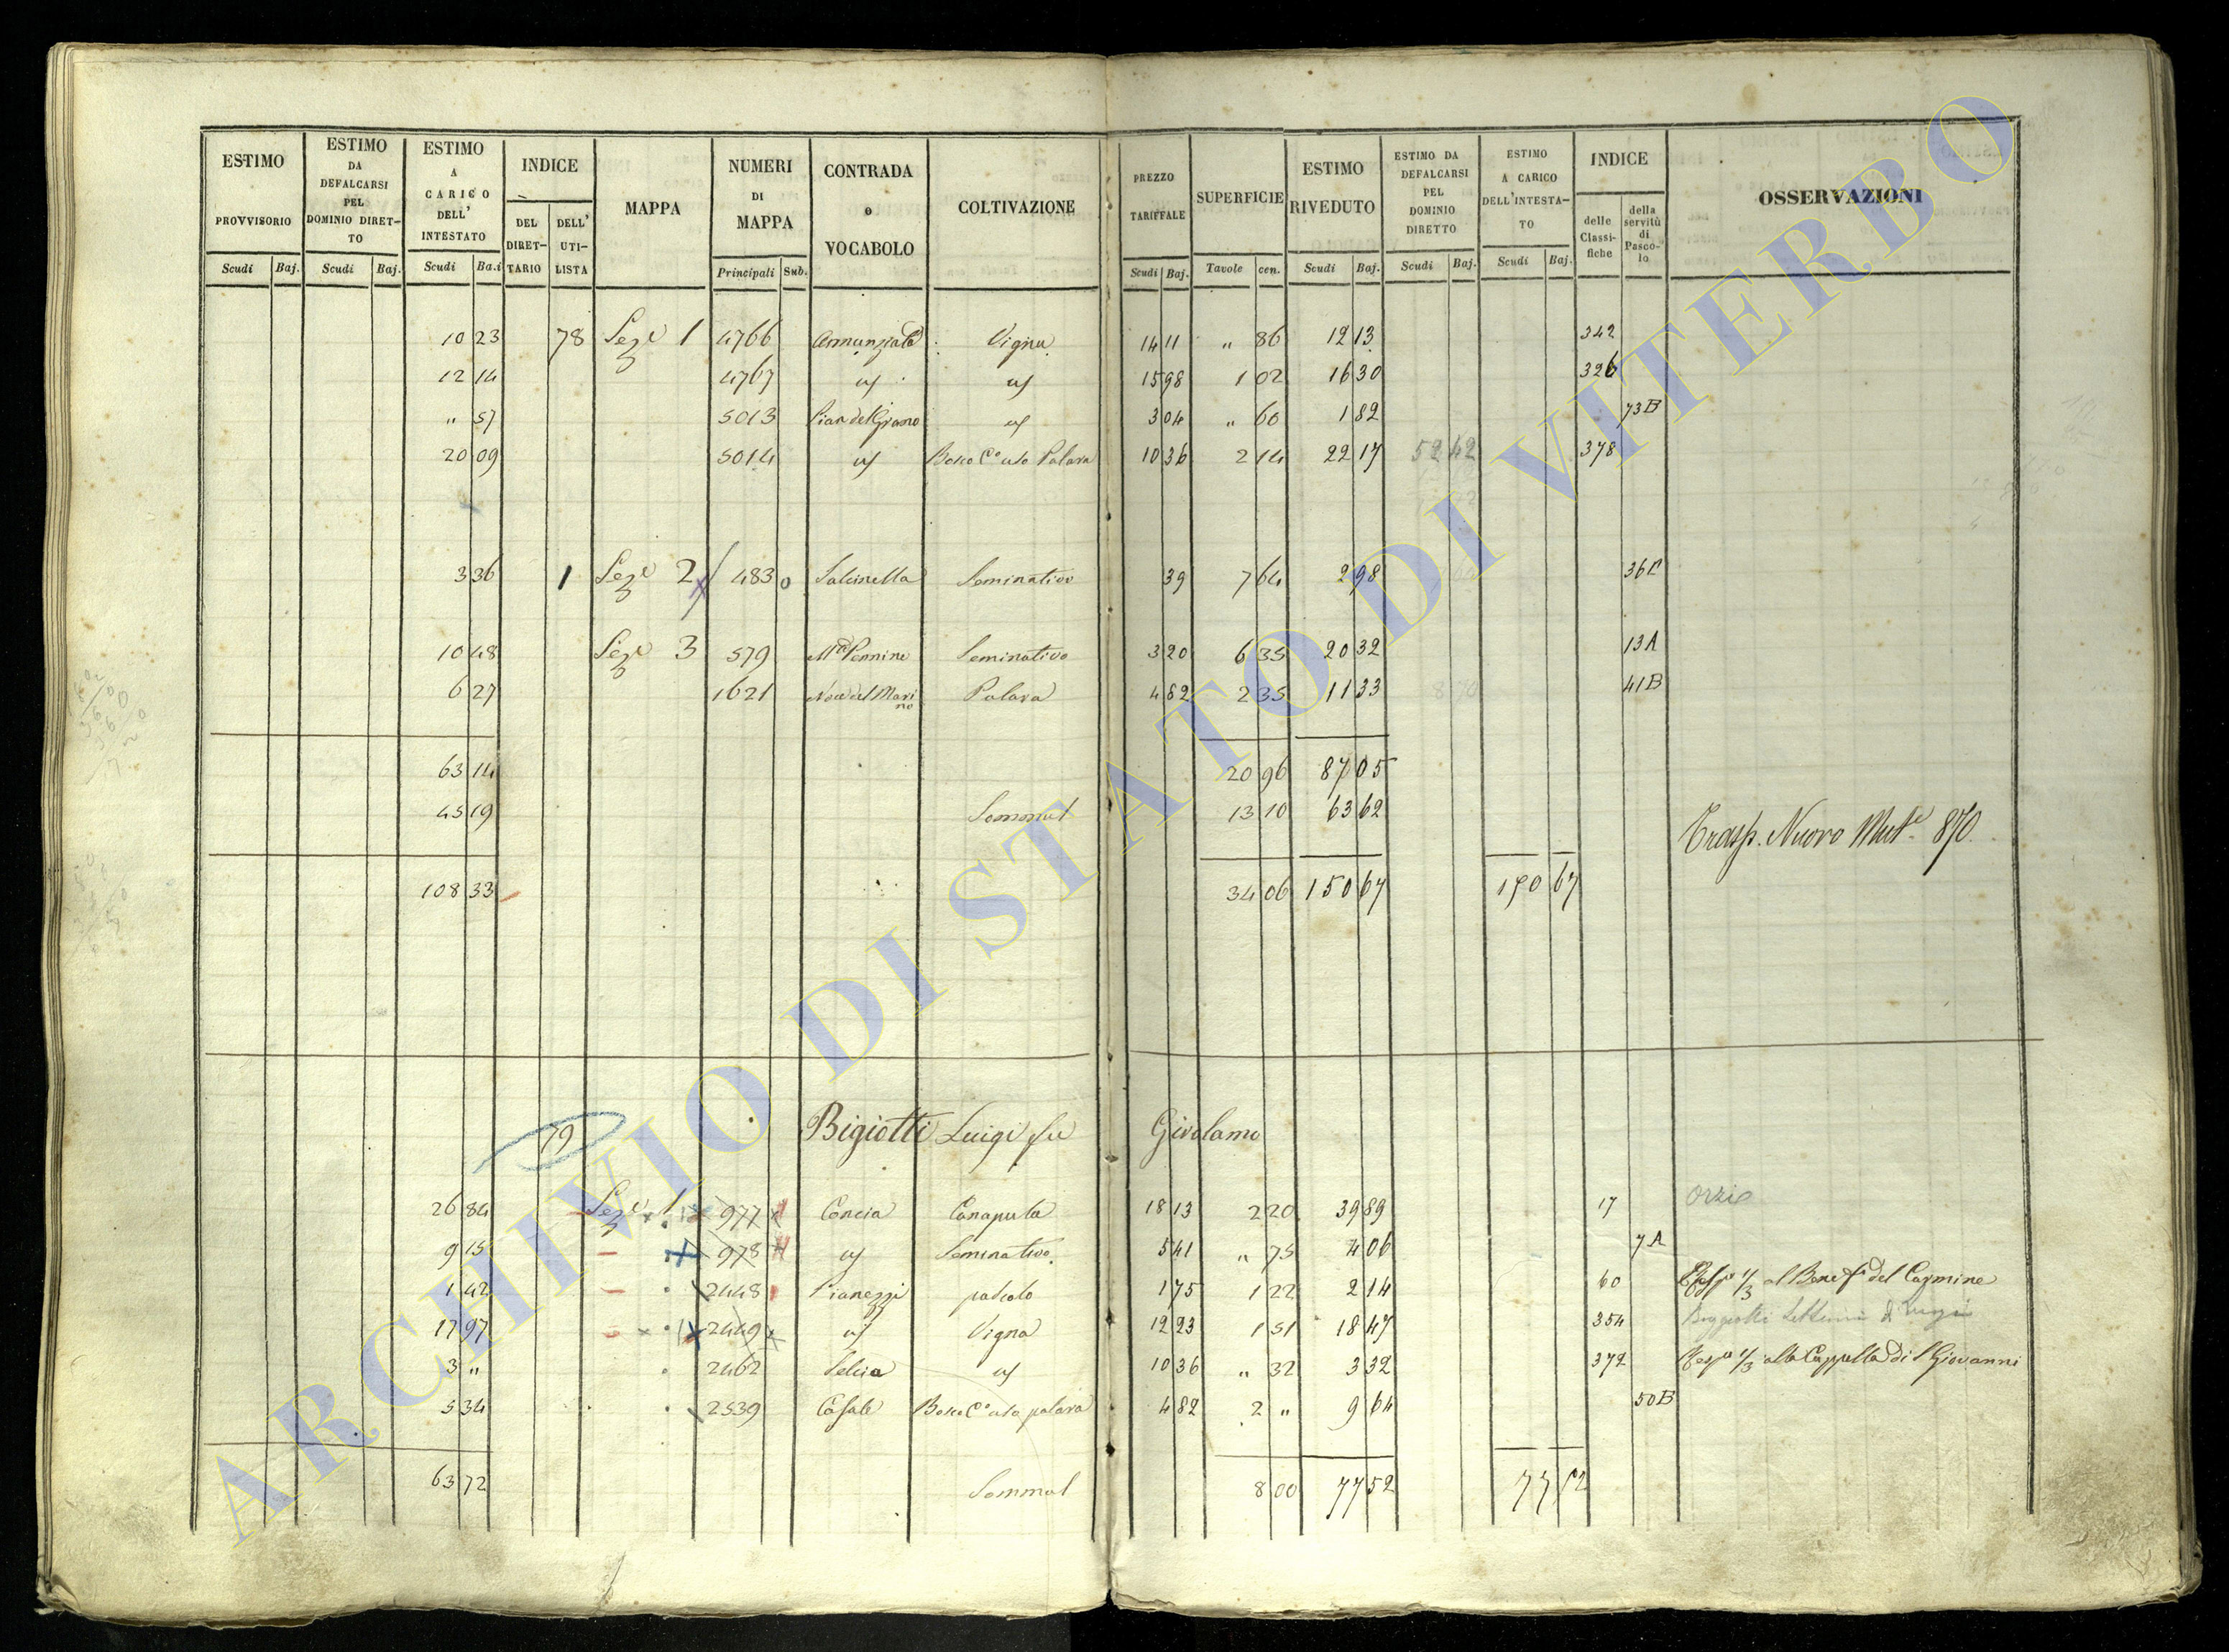 ESTIMO PROVVISORIO
ESTIMO DA DEFALCARSI PEL DOMINIO DIRET-TO
ESTIMO A CARICO DELL' INTESTATO
INDICE
DEL DIRET-TARIO
DELL' UTI-LISTA
MAPPA
NUMERI DI MAPPA
CONTRADA o VOCABOLO
COLTIVAZIONE
PREZZO TARIFFALE
SUPERFICIE
ESTIMO RIVEDUTO
ESTIMO DA DEFALCARSI PEL DOMINIO DIRETTO
ESTIMO A CARICO DELL'INTESTA-TO
INDICE
delle Classi-fiche
della servitù di Pasco-lo
OSSERVAZIONI
Scudi Baj. Scudi Baj. Scudi Ba.i Principali Sub. Scudi Baj. Tavole cen. Scudi Baj. Scudi Baj. Scudi Baj.
10 23 78 Seze 1 4766 Annunziata Vigna 14 11 " 86 12 13 342
12 14 4767 us us 15 98 1 02 16 30 326
" 57 5013 Pian del Grano us 3 04 " 60 1 82 73B
20 09 5014 us Bosco Co uso Palara 10 36 2 14 22 17 52 42 378
3 36 1 Seze 2 483 0 Salcinella Seminativo 39 7 64 2 98 36C
10 48 Seze 3 579 Seminativo 3 20 6 35 20 32 13A
6 27 1621 Noce del Marino Palara 4 82 2 35 11 33 41B
63 14 20 96 87 05
45 19 Sommal 13 10 63 62
Trasp. Nuovo Mute 870.
108 33 34 06 150 67 150 67
79 Bigiotti Luigi fu Girolamo
26 84 Seze 1 977 Concia Canaputa 18 13 2 20 39 89 17 Orzie
9 15 978 us Seminativo 5 41 " 75 4 06 7A
1 42 2448 Pianezzi pascolo 1 75 1 22 2 14 60 1/3 al Benefo del Carmine
17 97 2449 us Vigna 12 23 1 51 18 47 354
3 " 2462 Selcia us 10 36 " 32 3 32 372 1/3 alla Cappella di S Giovanni
5 34 2539 Casale Bosco Co uso palara 4 82 2 " 9 64 50B
63 72 Sommal 8 00 77 52 77 52
ARCHIVIO DI STATO DI VITERBO